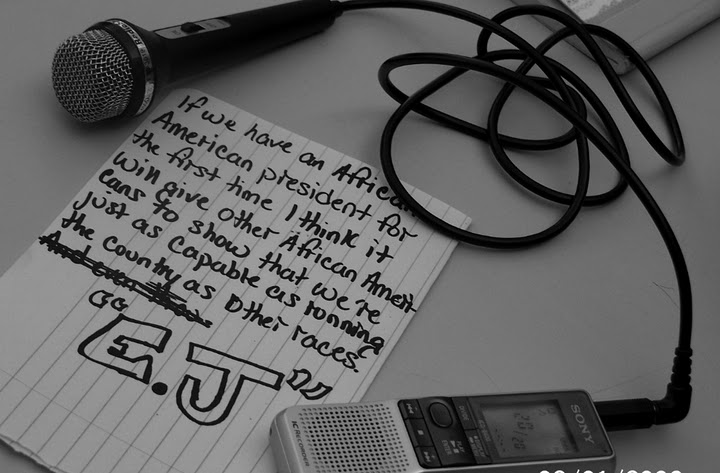 If we have an African
American president for
the first time I think it
will give other African Ameri
cans to show that we're
just as capable as running
the country as other races.
And even the
"E.J"
SONY
IC RECORDER